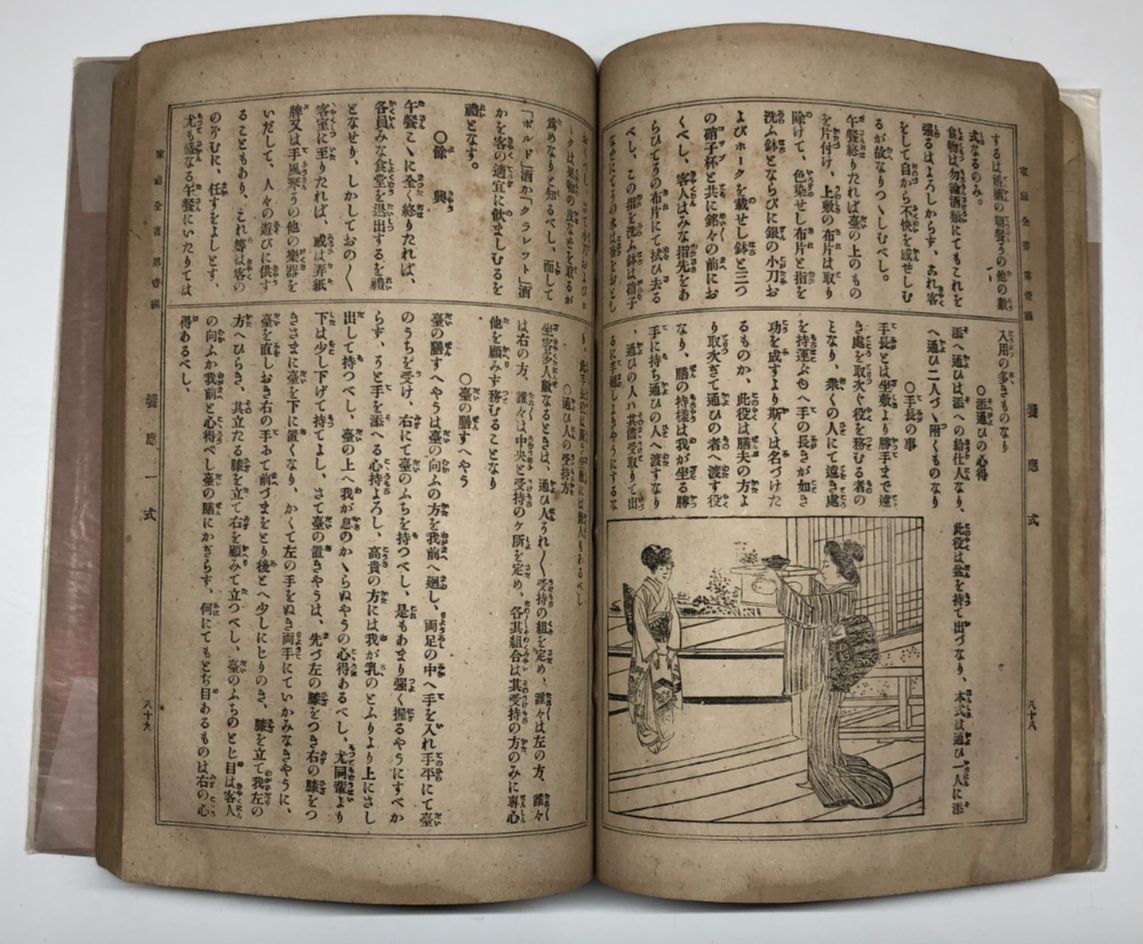 家庭全書第壹編
するは婚姻の朝餐その他の數
式なるのみ。
食物は勿論酒類にてもこれを
强るはよろしからす、あれ客
をして自から不快を感せしむ
るが故なりつゝしむべし。
午餐終りたれば臺の上のもの
を片付け、上敷の布片は取り
除けて、色染せし布片と指を
洗ふ鉢とならびに銀の小刀お
よびホークを載せし鉢と三つ
の硝子杯と共に銘々の前にお
くべし、客人はみな指先をあ
らひてそうの布片にて拭ひ去る
べし、この指を洗ふ鉢は硝子
饗應式
八十八
入用の多きものなり
○添通ひの心得
添へ通ひは添への給仕人なり、
へ通ひ二人づゝ附くものなり
此役は盆を持て出づなり、本式は通ひ一人に添
○手長の事
手長とは坐敷より勝手まで遠
き處を取次ぐ役を務むる者の
となり、衆くの人にて遠き處
を持運ぶもへ手の長きが如き
功を成すより斯くは名づけた
るものか、此役は膳夫の方よ
り取次ぎて通ひの者へ渡す役
なり、膳の持様は我が坐る勝
手に持ち通ひの人へ渡すなり
、通ひの人ハ其儘受取りて出
家庭全書第壹編
爲めなりと知るべし、而して
「ボルド」酒か「クラレット」酒
かを客の適宜に飲ましむるを
禮となす。
○餘興
午餐こゝに全く終りたれば、
各員みな食堂を退出するを禮
となせり、しかしておの〱
客室に至りたれば、或は弄紙
牌又は手風琴その他の樂器を
いだして、人々の遊びに供す
ることもあり、これ等は客の
のぞむに、任すをよしとす、
尤も盛なる午餐にいたりては
饗應一式
八十九
○通ひ人の受持方
坐客多人數なるときは、通ひ人それ〲受持の組を定め、誰々は左の方、誰々
は右の方、誰々は中央と受持のケ所を定め、各其組合は其受持の方のみに專心
他を顧みず務むることなり
○臺の膳すへやう
臺の膳すへやうは臺の向ふの方を我前へ廻し、両足の中へ手を入れ手平にて臺
のうちを受け、右にて臺のふちを持つべし、是もあまり强く握るやうにすべか
らす、そうと手を添へる心持よろし、高貴の方には我が乳のとふりより上にさし
出して持つべし、臺の上へ我が息のかゝらぬやうの心得あるべし、尤同輩より
下は少し下げて持てよし、さて臺の置きやうは、先づ左の膝をつき右の膝をつ
きさまに臺を下に置くなり、かくて左の手をぬき両手にていかみなきやうに、
臺を直しおき右の手にて前づまをとり後とへ少しにじりのき、膝を立て我左の
方へひらき、其立たる膝を立て右を顧みて立つべし、臺のふちのとじ目は客人
の向ふか我前と心得べし臺の膳にかぎらす、何にてもとぢ目あるものは右の心
得あるべし、